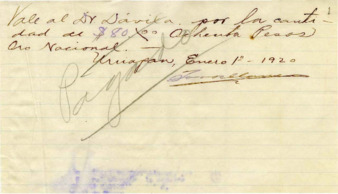 Vale al Dr Dávila. por la canti-
dad de $80.00 Ochenta Pesos
Oro Nacional.
Uruapan, Enero 1º - 1920
Pagado